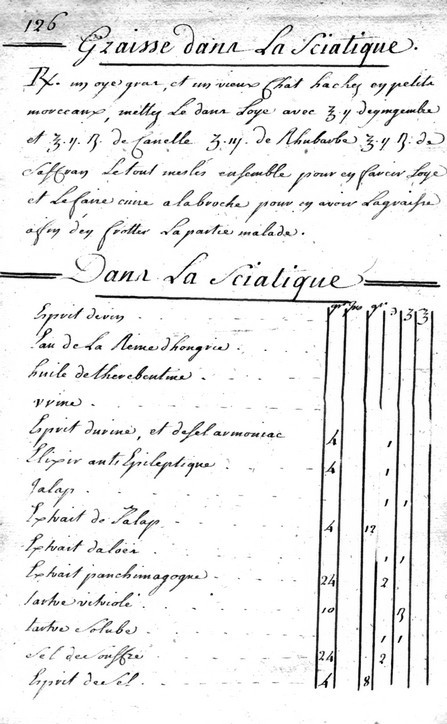 126
Graisse dans La Sciatique.
℞. un oye gras, et un vieux Chat hachés en petits
morceaux, mettez Le dans Loye avec ʒ ij de gingembre
et ʒ. ij. ß. de Canelle ʒ. iij. de Rhubarbe ʒ ij ß. de
Saffran Le tout meslés ensemble pour en farcir Loye
et Le faire cuire a la broche pour en avoir La graisse
afin d'en frotter La partie malade.
Dans La Sciatique
Esprit de vin
Eau de La Reine d'hongrie.
huile de therebentine
vrine
Esprit durine, et de sel armoniac 4 1
Elixir anti Epileptique 4 1
Jalap 1 1
Extrait de Jalap 4 12
Extrait daloës 1 1
Extrait panchimagogue 24 2
tartre vitriolé 10 ß
tartre Solube 1 1
Sel de Souffre 24 2
Esprit de Sel 4 8